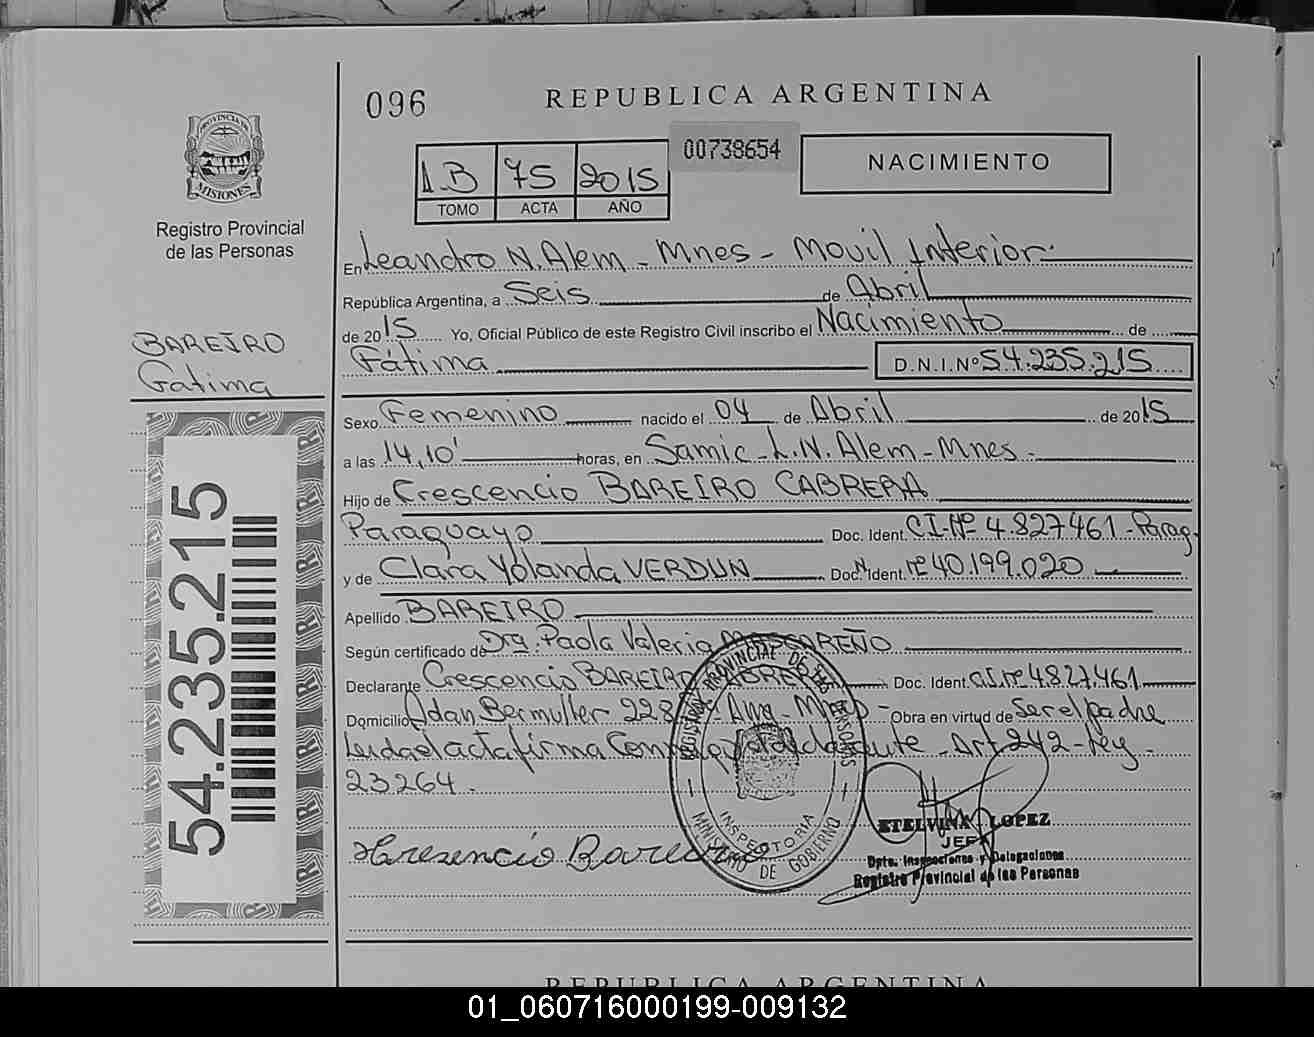 096
REPUBLICA ARGENTINA
PROVINCIA DE
MISIONES
Registro Provincial
de las Personas
1.B 75 2015
TOMO ACTA AÑO
00738654
NACIMIENTO
En Leandro N. Alem - Mnes - Movil Interior.
República Argentina, a Seis de Abril
de 2015 Yo, Oficial Público de este Registro Civil inscribo el Nacimiento de
Fátima D.N.I.Nº 54.235.215
BAREIRO
Fatima
54.235.215
Sexo Femenino nacido el 04 de Abril de 2015
a las 14,10' horas, en Samic - L.N. Alem - Mnes -
Hijo de Crescencio BAREIRO CABRERA
Paraguayo Doc. Ident. C.I.Nº 4.827.461 - Parag.
y de Clara Yolanda VERDUN Doc. N. Ident. nº 40.199.020
Apellido BAREIRO
Según certificado de Dra. Paola Valeria MASCAREÑO
Declarante Crescencio BAREIRO CABRERA Doc. Ident. C.I. nº 4.827.461
Domicilio Adan Bermuller 228 - Alem - Mnes - Obra en virtud de Ser el padre
Leida el acta firma Conmigo el declarante - Art 242 - Ley -
23264.
Cresencio Bareiro
REGISTRO PROVINCIAL DE LAS PERSONAS
INSPECTORIA
MINISTERIO DE GOBIERNO
ETELVINA LOPEZ
JEFA
Dpto. Inspecciones y Delegaciones
Registro Provincial de las Personas
REPUBLICA ARGENTINA
01_060716000199-009132